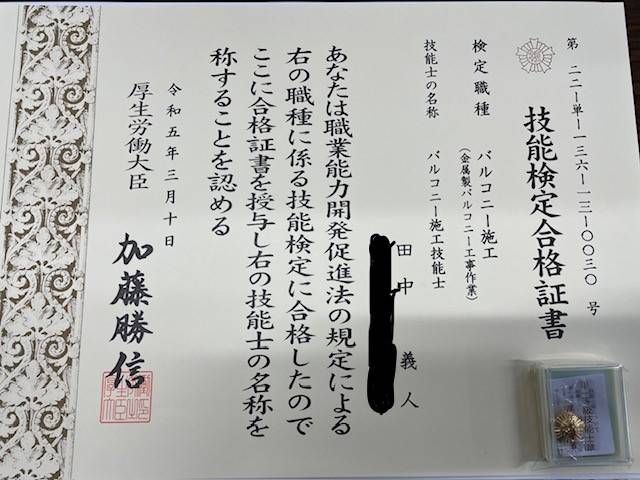 第 二二-単-一三六-一三-〇〇三〇 号
技能検定合格証書
検定職種 バルコニー施工
(金属製バルコニー工事作業)
技能士の名称 バルコニー施工技能士
田中 義人
あなたは職業能力開発促進法の規定による
右の職種に係る技能検定に合格したので
ここに合格証書を授与し右の技能士の名称を
称することを認める
令和五年三月十日
厚生労働大臣 加藤勝信